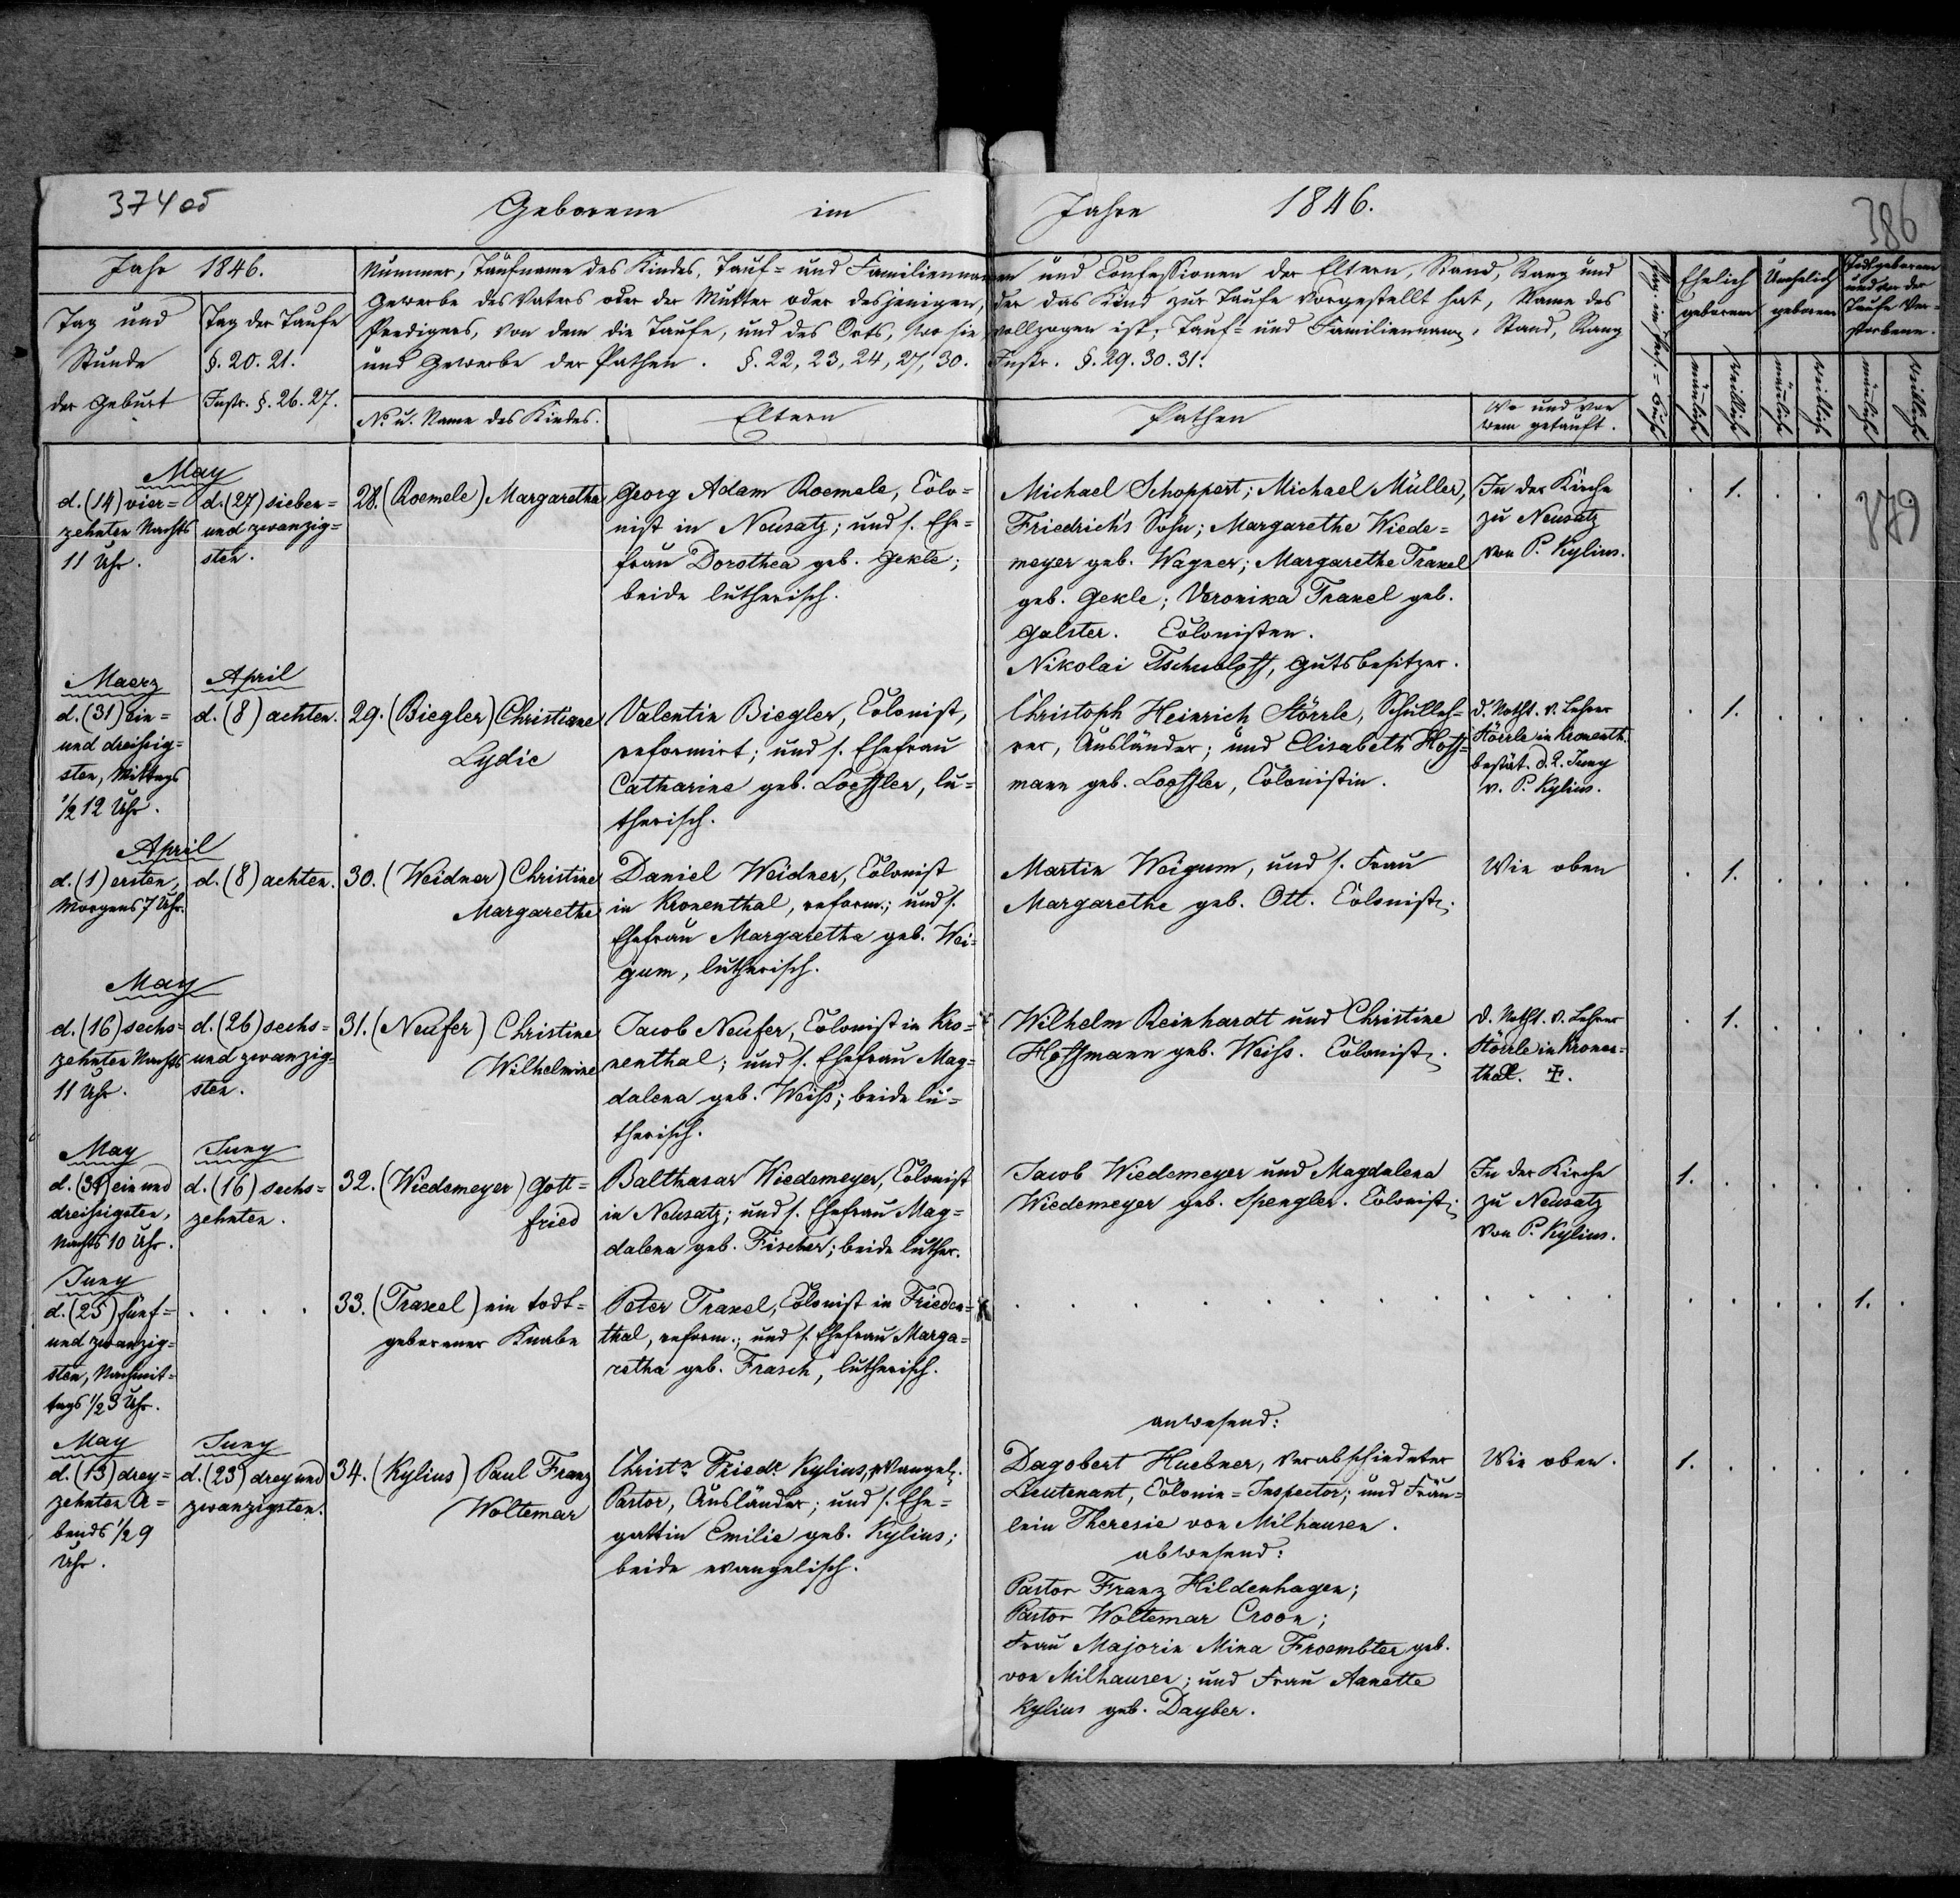 374 об
Geborene im Jahre 1846.
386
Jahr 1846.
Tag und
Stunde
der Geburt
Tag der Taufe
§. 20. 21.
Instr. §. 26. 27.
Nummer, Taufname des Kindes, Tauf= und Familiennamen und Confessionen der Eltern, Stand, Rang und
Gewerbe des Vaters oder der Mutter oder desjenigen, der das Kind zur Taufe vorgestellt hat, Name des
Predigers, von dem die Taufe, und des Orts, wo sie vollzogen ist; Tauf= und Familiennam., Stand, Rang
und Gewerbe der Pathen. §. 22, 23, 24, 27, 30. Instr. §. 29. 30. 31.
No. u. Name des Kindes.
Eltern
Pathen
Wo und von
wem getauft.
Ehelich
geboren
Unehelich
geboren
Todtgeborene
und vor der
Taufe Ver=
storbene.
männlich
weiblich
männlich
weiblich
männlich
weiblich
379
May
d. (14) vier=
zehnten Nachts
11 Uhr.
d. (27) sieben=
und zwanzig=
sten.
28. (Roemele) Margaretha
Georg Adam Roemele, Colo=
nist in Neusatz; und s. Ehe=
frau Dorothea geb. Gekle;
beide lutherisch.
Michael Schoppert; Michael Müller,
Friedrich's Sohn; Margarethe Wiede=
meyer geb. Wagner; Margarethe Traxel
geb. Gekle; Veronika Traxel geb.
Galster. Colonisten.
Nikolai Tschuloff, Gutsbesitzer.
In der Kirche
zu Neusatz
von P. Kylius.
. 1. . .
Maerz
d. (31) ein=
und dreißig=
sten, Mittags
1/2 12 Uhr.
April
d. (8) achten.
29. (Biegler) Christiane
Lydie
Valentin Biegler, Colonist,
reformirt; und s. Ehefrau
Catharine geb. Loeffler, lu=
therisch.
Christoph Heinrich Störrle, Schulleh=
rer, Ausländer; und Elisabeth Hoff=
mann geb. Loeffler, Colonistin.
d. Notht. v. Lehrer
Störrle in Kronenth.
bestät. d. 2. Juny
v. P. Kylius.
. 1. . . . .
April
d. (1) ersten,
Morgens 7 Uhr.
d. (8) achten.
30. (Weidner) Christine
Margarethe
Daniel Weidner, Colonist
in Kronenthal, reform.; und s.
Ehefrau Margaretha geb. Wei=
gum, lutherisch.
Martin Weigum, und s. Frau
Margarethe geb. Ott. Colonist.
Wie oben
. 1. . . . .
May
d. (16) sechs=
zehnten Nachts
11 Uhr.
d. (26) sechs=
und zwanzig=
sten.
31. (Neufer) Christine
Wilhelmine
Jacob Neufer, Colonist in Kro=
nenthal; und s. Ehefrau Mag=
dalena geb. Weiß; beide lu=
therisch.
Wilhelm Reinhardt und Christine
Hoffmann geb. Weiss. Colonist.
d. Notht. v. Lehrer
Störrle in Kronen=
thal. ‡.
. 1. . . . .
May
d. (31) ein und
dreißigsten,
Nachts 10 Uhr.
Juny
d. (16) sechs=
zehnten.
32. (Wiedemeyer) Gott=
fried
Balthasar Wiedemeyer, Colonist
in Neusatz; und s. Ehefrau Mag=
dalena geb. Fischer; beide luther.
Jacob Wiedemeyer und Magdalena
Wiedemeyer geb. Spengler. Colonist.
In der Kirche
zu Neusatz
von P. Kylius.
1. . . . . .
Juny
d. (25) fünf=
und zwanzig=
sten, Nachmit=
tags 1/2 3 Uhr.
. . . .
33. (Traxel) ein todt=
geborener Knabe
Peter Traxel, Colonist in Frieden=
thal, reform.; und s. Ehefrau Marga=
retha geb. Frasch, lutherisch.
. . . . . . . . . . .
. . . . 1. .
May
d. (13) drey=
zehnten A=
bends 1/2 9
Uhr.
Juny
d. (23) drey und
zwanzigsten.
34. (Kylius) Paul Franz
Woltemar
Christn. Friedr. Kylius, evangel.
Pastor, Ausländer; und s. Ehe=
gattin Emilie geb. Kylius;
beide evangelisch.
anwesend:
Dagobert Huebner, verabschiedeter
Lieutenant, Colonie=Inspector; und Fräu=
lein Theresie von Milhausen.
abwesend:
Pastor Franz Hildenhagen;
Pastor Woltemar Croon;
Frau Majorin Mina Froembter geb.
von Milhausen; und Frau Annette
Kylius geb. Dayber.
Wie oben.
1. . . . . .